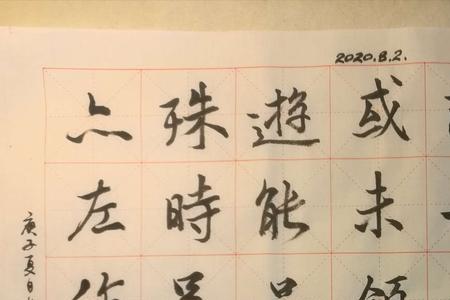 2020.8.2.
或未
遊能
殊時
亦左
庚子夏日